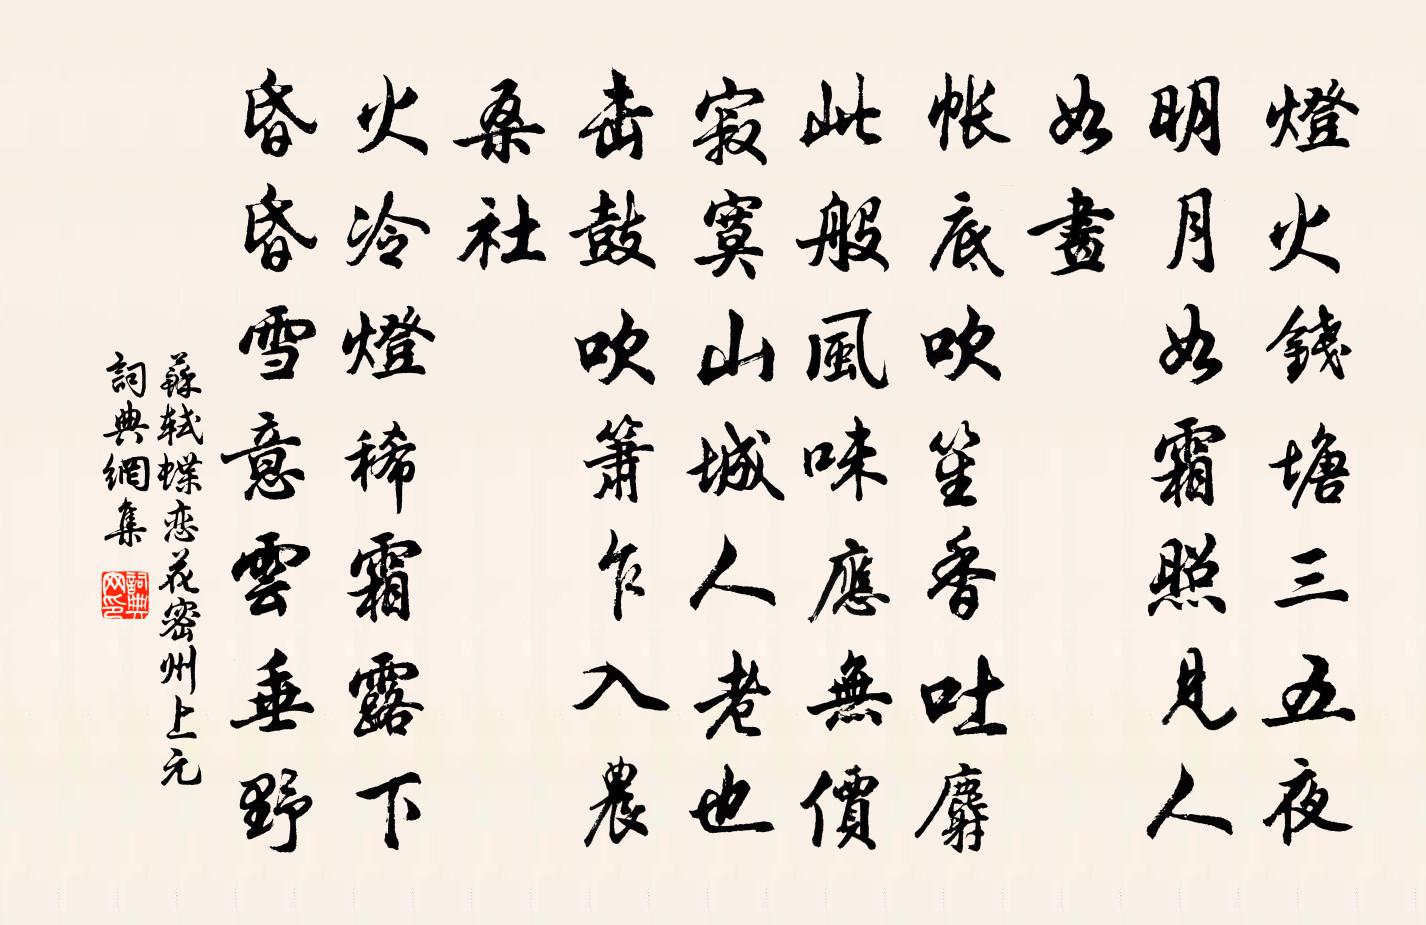 燈火錢塘三五夜
明月如霜照見人
如畫
帳底吹笙香吐麝
此般風味應無價
寂寞山城人老也
击鼓吹簫乍入農
桑社
火冷燈稀霜露下
昏昏雪意雲垂野
蘇轼蝶恋花密州上元
詞典網集
詞典网印